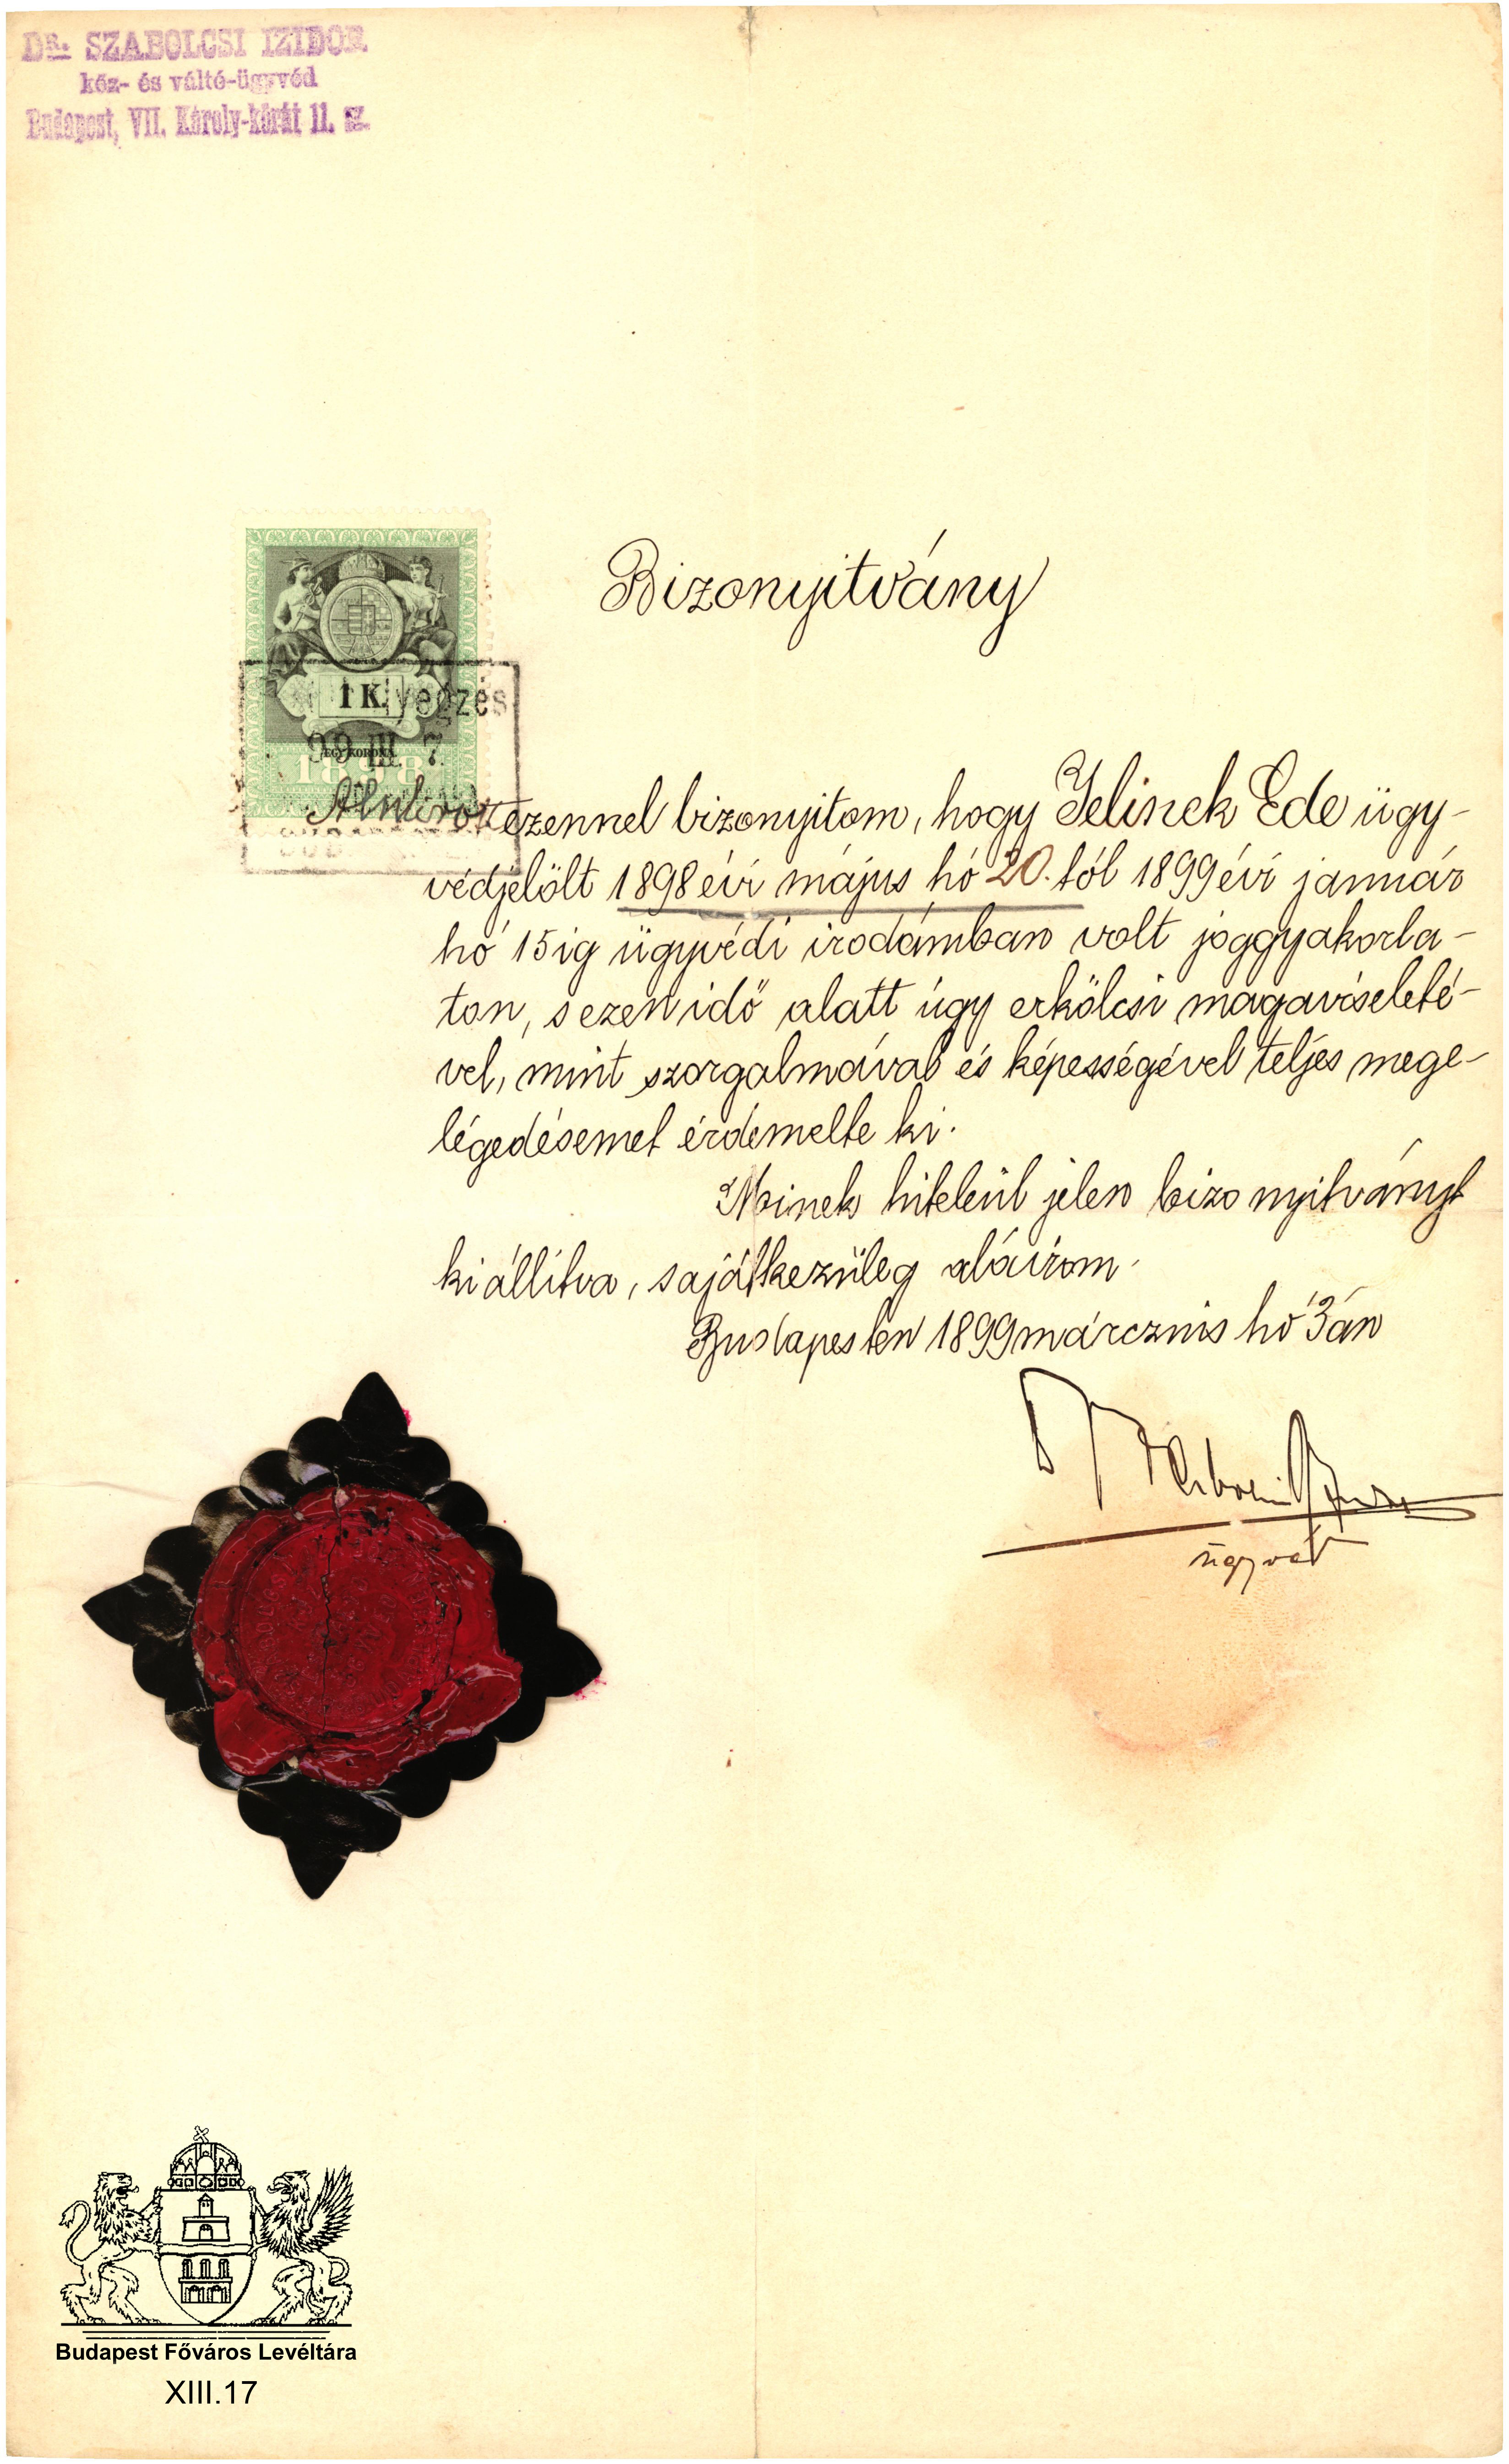 Dr. SZABOLCSI IZIDOR
köz- és váltó-ügyvéd
Budapest, VII. Károly-körút 11. sz.
Bizonyitvány
1 K.
EGY KORONA
1898
99 III. 7
Alulirott ezennel bizonyitom, hogy Jelinek Ede ügy-
védjelölt 1898 évi május hó 20.tól 1899 évi január
hó 15ig ügyvédi irodámban volt joggyakorla-
ton, s ezen idő alatt úgy erkölcsi magaviseleté-
vel, mint szorgalmával és képességével teljes mege-
légedésemet érdemelte ki.
Minek hiteleül jelen bizonyitványt
kiállítva, sajátkezüleg aláirom.
Budapesten 1899 márczius hó 3án
ügyvéd
Budapest Főváros Levéltára
XIII.17